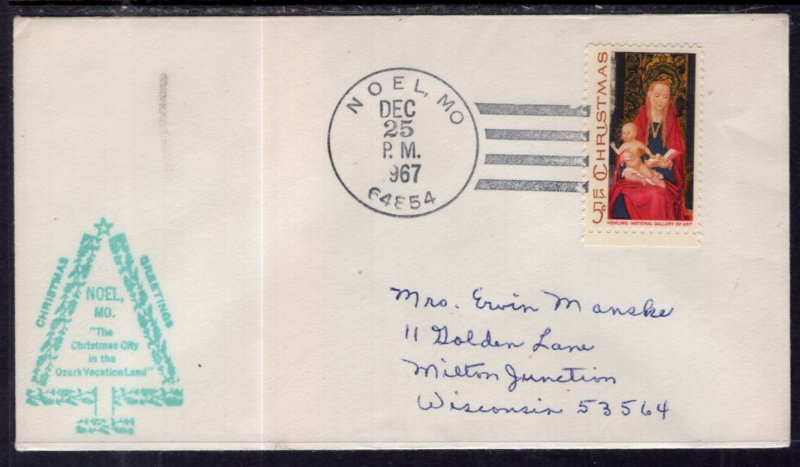 NOEL, MO
DEC
25
P. M.
1967
64854
CHRISTMAS
U.S. 5c
MEMLING · NATIONAL GALLERY OF ART
CHRISTMAS GREETINGS
NOEL,
MO.
"The
Christmas City
in the
Ozark Vacation Land"
Mrs. Ervin Manske
11 Golden Lane
Milton Junction
Wisconsin 53564